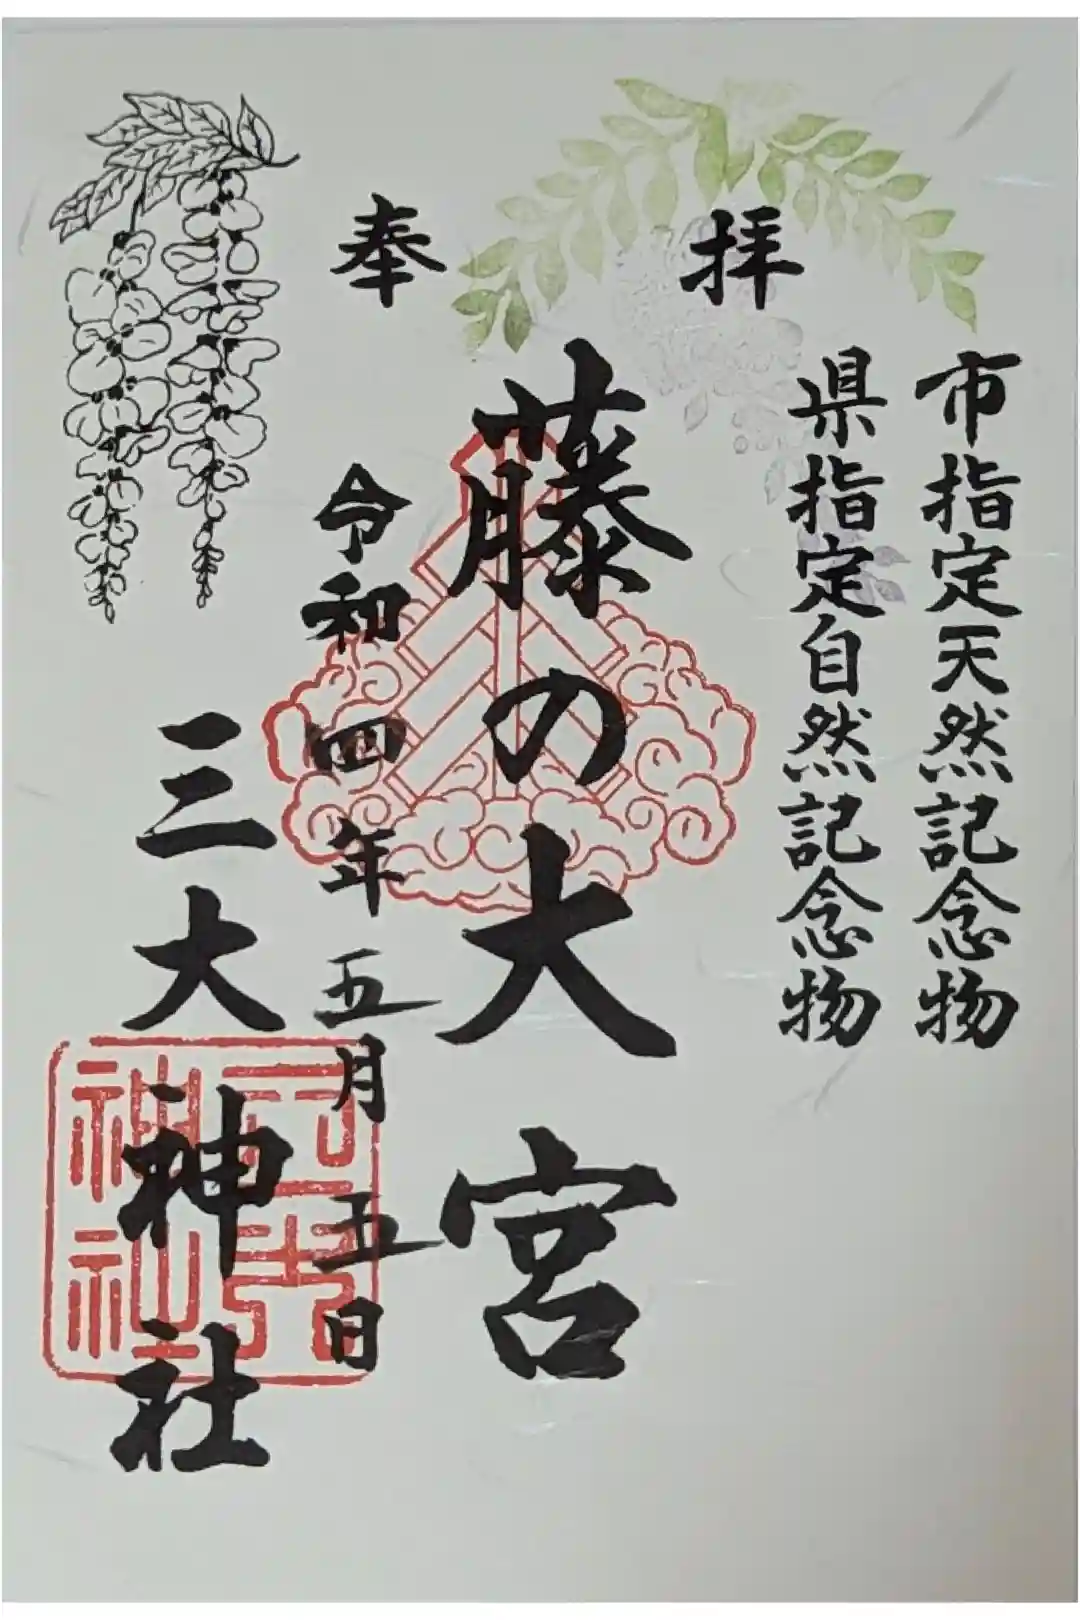 奉拝
市指定天然記念物
県指定自然記念物
藤の大宮
令和四年五月五日
三大神社
三大神社